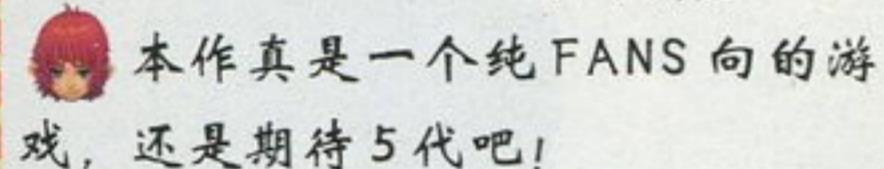 本作真是一个纯FANS向的游
戏，还是期待5代吧！